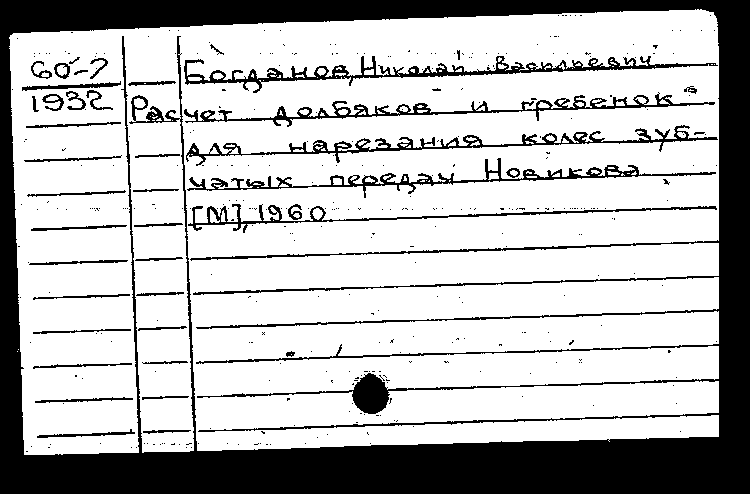 60-7 Богданов, Николай Васильевич
1932 Расчет долбяков и гребенок
для нарезания колес зуб-
чатых передач Новикова
[М], 1960